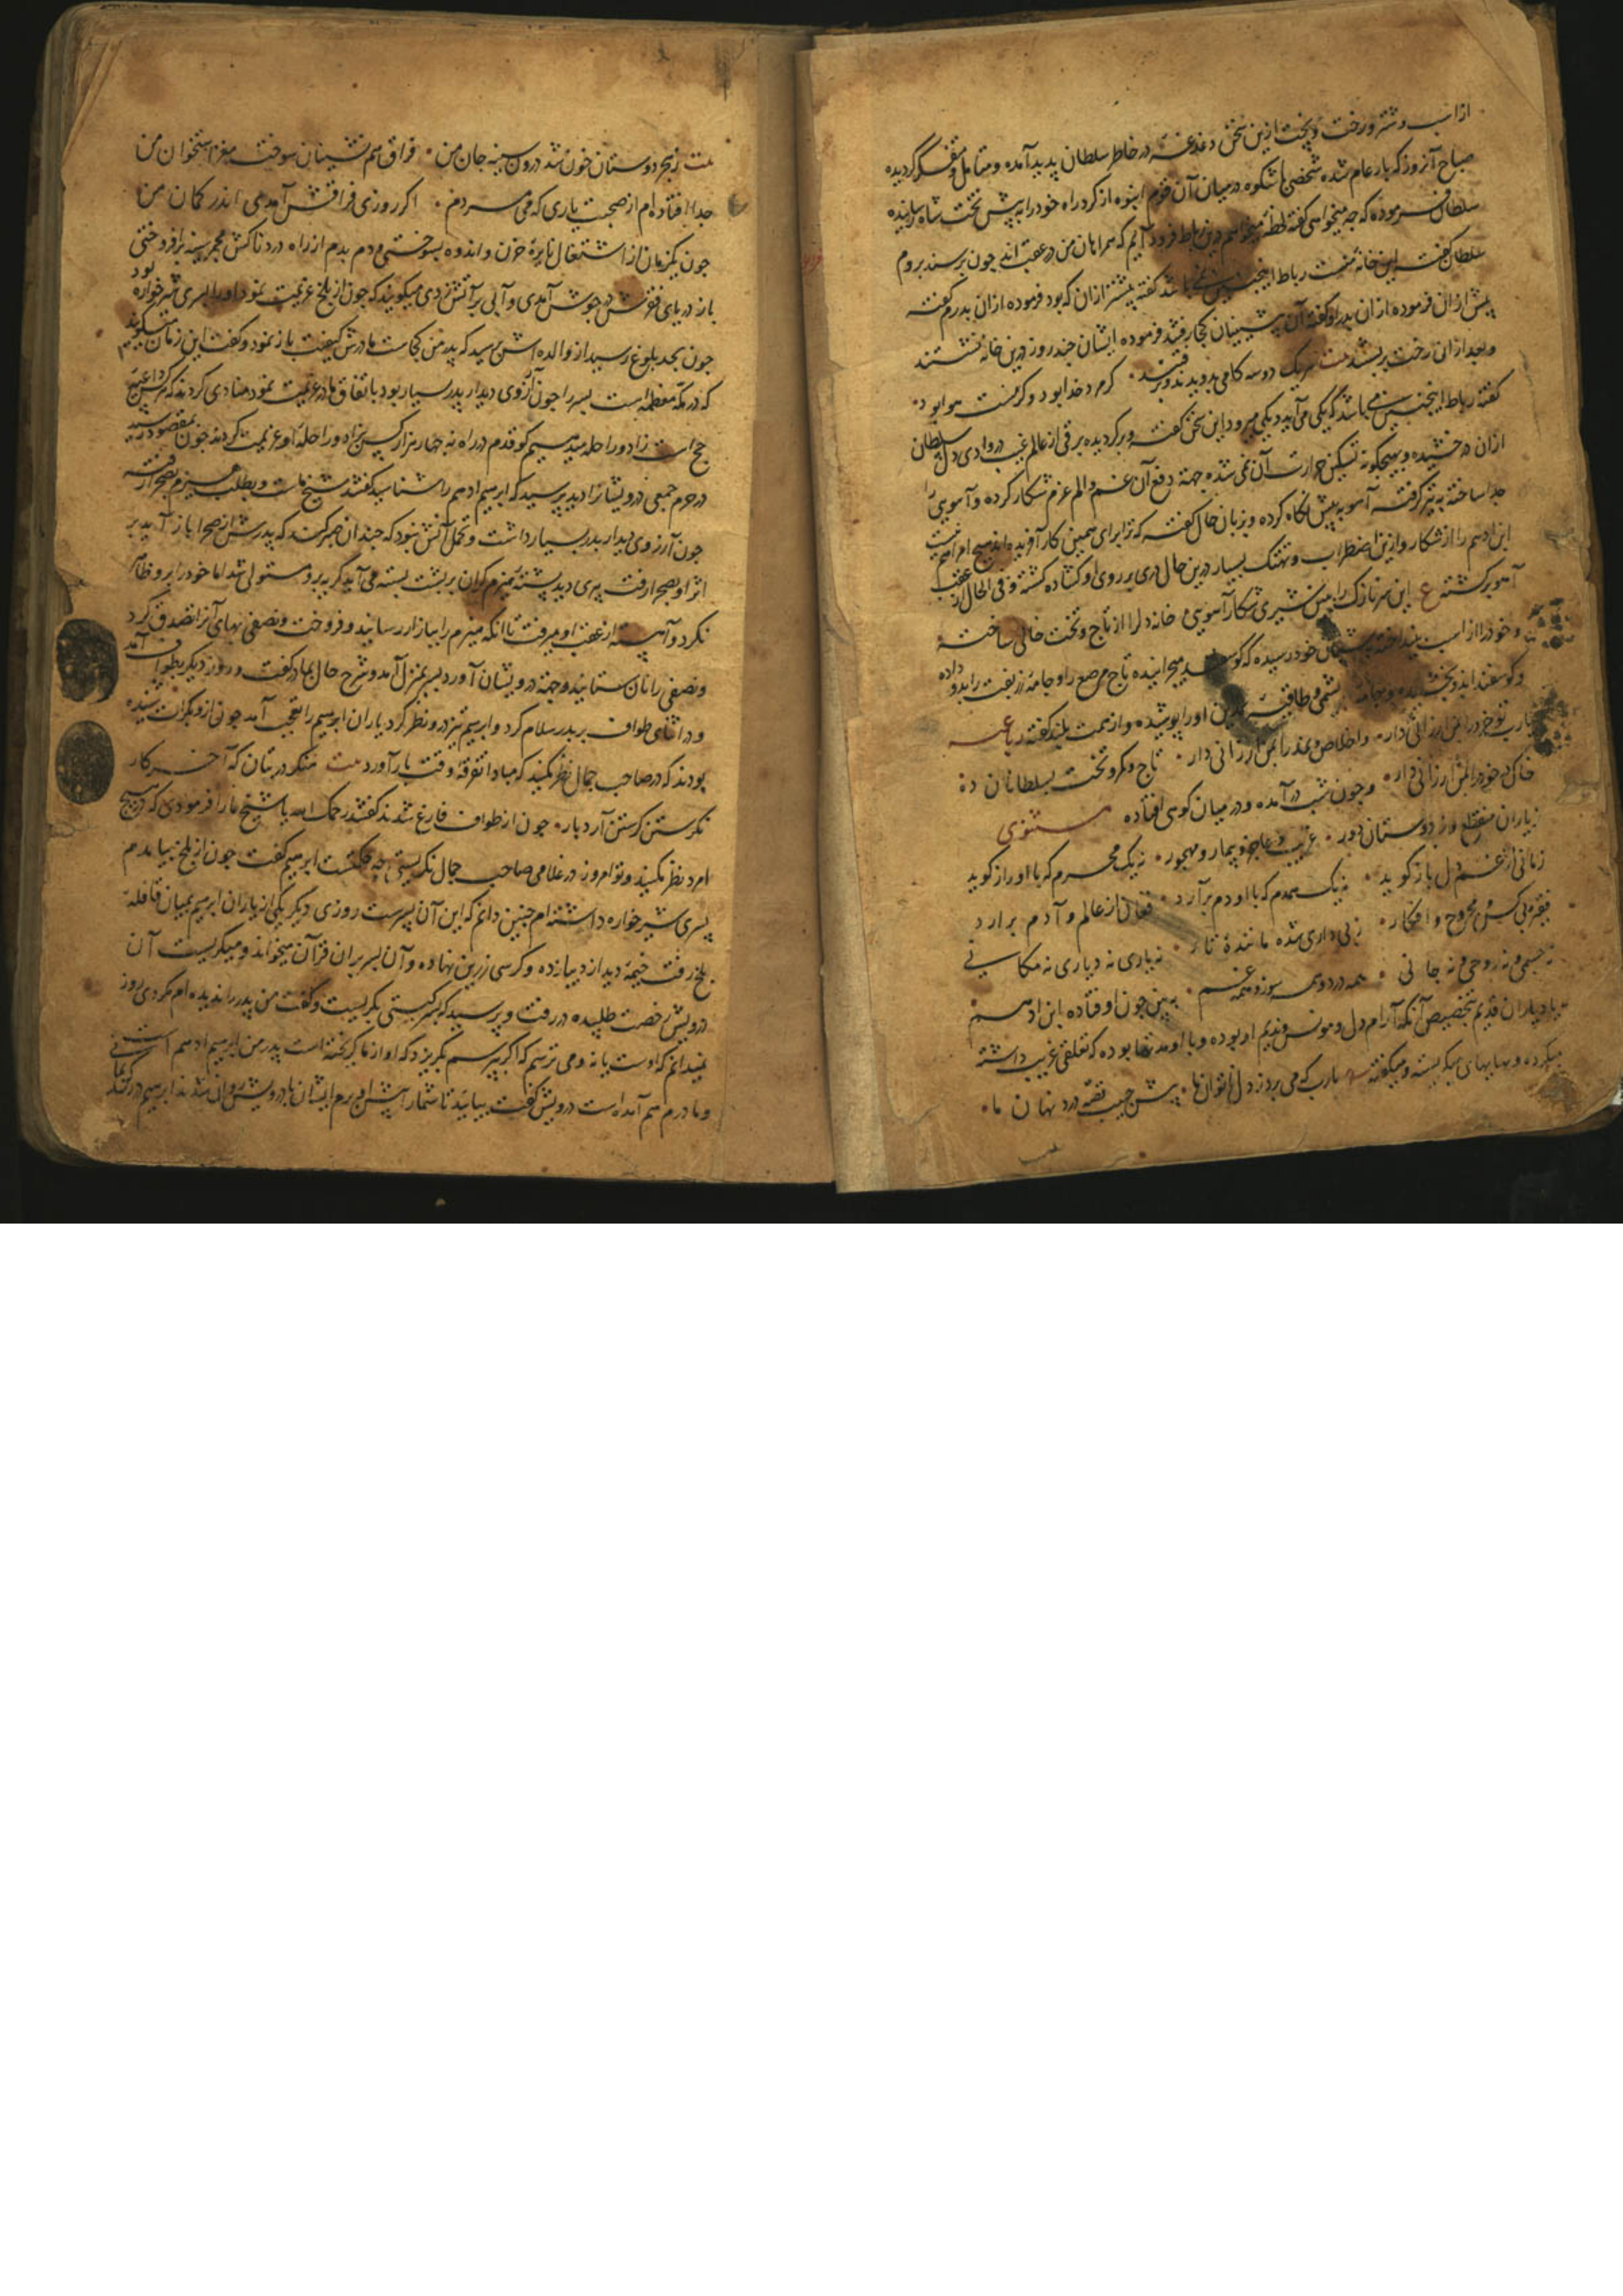 از اسب و شتر و رخت و پخت ازین سخن دغدغه در خاطر سلطان پدید آمده و متامل و متفکر گردیده
صباح آنروز که بار عام شده شخصی باشکوه درمیان آن قوم انبوه از گرد راه خود را به پیش تخت شاه رسانیده
سلطان فرموده که چه میخواهی گفته لحظه میخواهم درین رباط فرود آیم که همراهان من در عقب اند چون برسند بروم
سلطان گفت این خانه منست رباط اینجنین نمی باشد گفته پیشتر از ان که بود فرموده از ان پدرم گفته
پیش ازان فرموده از ان پدر او گفته آن پیشینیان کجا رفتند فرموده ایشان چند روز درین خانه نشستند
و بعد ازان رخت بربستند بیت هریک دوسه کامی بدویدند و برفتند کرم دخدا بود و کرمست هوا بود
گفته رباط اینجنین می باشد که یکی می آید و یکی میرود این سخن گفته و برگردیده برقی از عالم غیب در وادی دل سلطان
ازان درخشیده و بهیچگونه تسکین حرارت آن نمی شده جهة دفع آن غم و الم عزم شکار کرده و آهویی را
جدا ساخته به تیر گرفته آهو به پیش نگاه کرده و بزبان حال گفته که ترا برای همین کار آفریده اند هیچ امر اهم نیست
ابن ادهم را از شکار و ازین اضطراب و تهتک بسیار درین حال دری بر روی او گشاده گشته و فی الحال از عقب
آهو برگشته ع این سر نازک را پس شیری شکار آهویی خانه دل را از تاج و تخت خالی ساخته
و خود را از اسب بینداخته بشبان خود رسیده که گوسفند میچرانیده تاج مرصع را و جامه زربفت را بدو داده
و گوسفندان بدو بخشیده و جامه پشمی و طاقیه نمدین او را پوشیده و از همت بلند گفته رباعیه
یارب تو مرا درین ارزانی دار و اخلاص و نمد را بمن ارزانی دار تاج و کمر و تخت بسلطانان ده
خاک در خود را بمن ارزانی دار و چون شب در آمده و در میان کوی افتاده مثنوی
ز یاران منقطع وز دوستان دور غریب و عاجز و بیمار و مهجور نه یک محرم که با او راز گوید
زمانی از غم دل باز گوید نه یک همدم که با او دم برآرد فغان از عالم و آدم برارد
فقیر بی کس و مجروح و افکار ز بی داری شده مانندهٔ تار نه یاری نه دیاری نه مکانی
نه جسمی و نه روحی و نه جانی همه درد و همه سوز و همه غم به بین چون اوفتاده ابن ادهم
یاد یاران قدیم بتخصیص آنکه آرام دل و مونس و ندیم او بوده و با او مدتها بوده که تعلقی غریب داشته
میکرده و بهایهای میگریسته و میگفته یارب که می برد ز دل ناتوان ما پیش حبیب قصه درد نهان ما
بیت ز هجر دوستان خون شد درون سینه جان من فراق هم نشینان سوخت مغز استخوان من
جدا افتاده ام از صحبت یاری که می مردم اگر روزی فراقش آمدی اندر گمان من
چون یکزمان از اشتعال نایرهٔ حزن و اندوه بسوختی و دم بدم از راه درد ناکش مجمر سینه برافروختی
باز دریای فقرش در جوش آمدی و آبی بر آتش زدی میگویند که چون از بلخ عزیمت نمود او را پسری شیرخواره بود
چون بحد بلوغ رسید از والده اش پرسید که پدر من کجاست مادرش کیفیت باز نمود و گفت این زمان میگویند
که در مکه معظمه است پسر را چون آرزوی دیدار پدر بسیار بود باتفاق مادر عزیمت نمود منادی کردند که هرکس داعیه
حج است زاد و راحله میدهیم گو قدم در راه نه چهار هزار کس بزاد و راحله او عزیمت کردند چون بمقصود رسید
در حرم جمعی درویشانرا دید پرسید که ابرهیم ادهم را شناسید گفتند شیخ ماست و بطلب هیزم بصحرا رفته
چون آرزوی دیدار پدر بسیار داشت و تحمل آنش نبود که چندان صبر کند که پدرش از صحرا باز آید بر
اثر او بصحرا رفت پیری دید پشتهٔ هیزم گران بر پشت بسته می آید گریه برو مستولی شد اما خود را برو ظاهر
نکرد و آهسته از عقب او میرفت تا آنکه هیزم را ببازار رسانید و فروخت و نصفی بهای آنرا تصدق کرد
و نصفی را نان ستانید و جهة درویشان آورد پسر بمنزل آمد و شرح حال بمادر گفت و روز دیگر بطواف آمد
و در اثنای طواف بر پدر سلام کرد و ابرهیم تیز درو نظر کرد یاران ابرهیم را تعجب آمد چون ازو بکرات شنیده
بودند که در صاحب جمال نظر نکنید که مبادا تفرقهٔ وقت بار آورد بیت منگر در بتان که آخر کار
نگرستن گرستن آرد بار چون از طواف فارغ شدند گفتند رحمک الله یا شیخ ما را فرمودی که در هیچ
امرد نظر نکنید و تو امروز در غلامی صاحب جمال نگریستی چه حکمتست ابرهیم گفت چون از بلخ بیامدم
پسری شیرخواره داشتم ام چنین دانم که این آن پسرست روزی دیگر یکی از یاران ابرهیم بمیان قافلهٔ
بلخ رفت خیمهٔ دید از دیبا زده و کرسی زرین نهاده و آن پسر بران قرآن میخواند و میگریست آن
درویش رخصت طلبیده در رفت و پرسید که پسر کیستی بگریست و گفت من پدر را ندیده ام مگر دی روز
نمیدانم که اوست یا نه و می ترسم که اگر بپرسم بگریزد که او از ما گریخته است پدر من ابرهیم ادهم است
و مادرم هم آمده است درویش گفت بیایید تا شما را پیش او برم ایشان با درویش روان شدند ابرهیم در